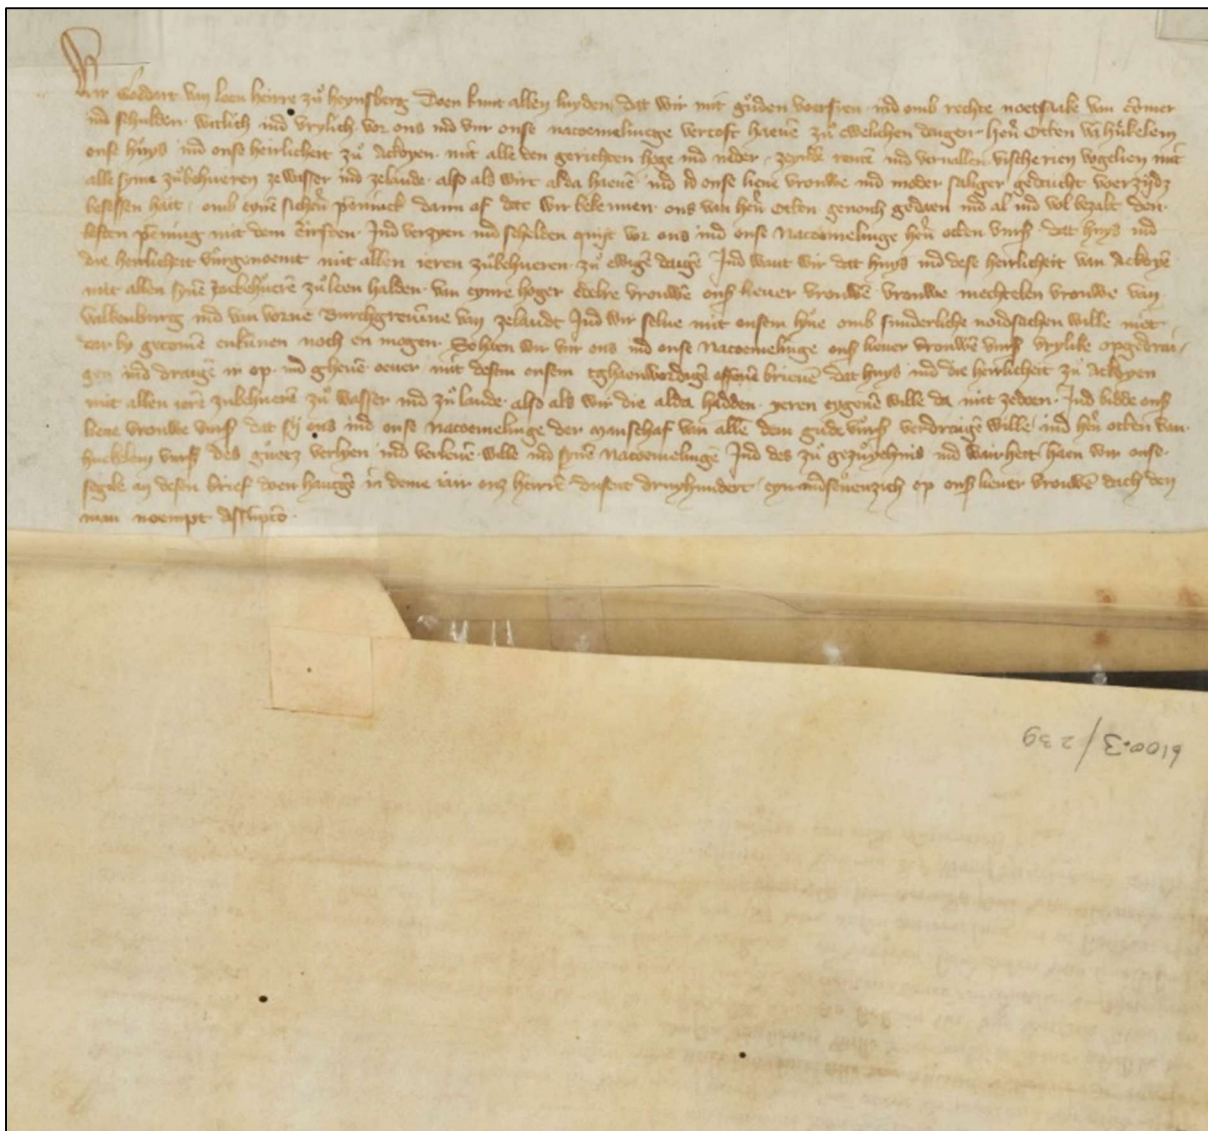 Wir Goddart van Loen heirre zů heynsberg Doen kunt allen luyden, dat wir mit gůden voersien ind omb rechte noetsaake van com̄er
ind schulden witlich ind vrylich vor ons ind vur onse nacoemelincge vercoft haeuē zů ewelichen daugen herē Otten vā hůkelem
onse hůys ind onse heirlicheit zů Ackoyen mit alle den gerichten hoge ind neder, renten ind vervallen vischerien vogelien mit
alle syme zůbehueren ze wasser ind zelande also als wirt alda haeuē ind id onse lieue vrouwe ind moder saliger gedaucht voer zijdz
besessen hait, omb eynē sichern pēninck darin af dat wir bekennen ons van herē Otten genoich gedaen ind al ind vol bezalt den
lesten pēning mit dem eirsten Ind verzyen ind schelden quijt vor ons ind onse Nacoemelinge herē otten vurß dat huys ind
die heirlicheit vůrgenoemt mit allen ieren zůbehueren zů ewigē daugē Ind want wir dat huys ind dese heirlicheit van Ackoyē
mit allen synē zoebehůerē zů leen halden van eynre hoger edelre vrouwē onß lieuer vrouwē vrouwe mechtelen vrouwe van
valkenburg ind van vorne Burchgreuīne van zelandt Ind wir selue mit onsem lyue omb sunderliche noidsachen wille niet
dar by gecomē enkunen noch en mogen Sohaen wir vur ons ind onse Nacoemelinge onß lieuer vrouwē vurß vrylike opgedrau/
gen ind draugē in op ind gheuē oeuer mit desem onsem tghaenwordigē offenē brieuē dat huys ind die heirlicheit zů Ackoyen
mit allen ierē zubehuerē zů wasser ind zů lande also als wir die alda hadden yeren eygenē wille da mit zedoen Ind bidde onß
lieue vrouwe vurß dat sij ons ind onse Nacoemelinge der manschaf van allē dem gude vurß verdraugē wille, ind herē otten van
huekelem vurß des gůetz verlyen ind verleuē wille ind synē Nacoemelinge Ind des zů gezůychnis ind wairheit haen wir onse
segele an desen brief doen haugē in deme iair onz herrē dusent dryuhundert eyn indseuenzich op onß lieuer vrouwē dach den
man noempt Assūptō
6100.3/239